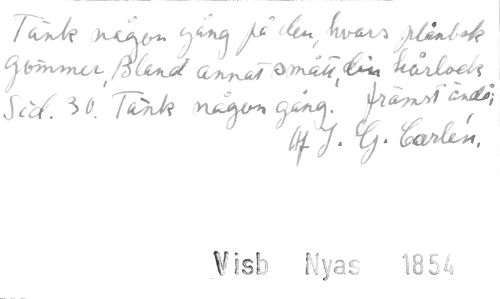 Tänk någon gång på den, hvars plånbok
Gömmer, Bland annat smått, din hårlock
Sid. 30. Tänk någon gång. främst ändå;
Af J. G. Carlén.
Visb Nyas 1854